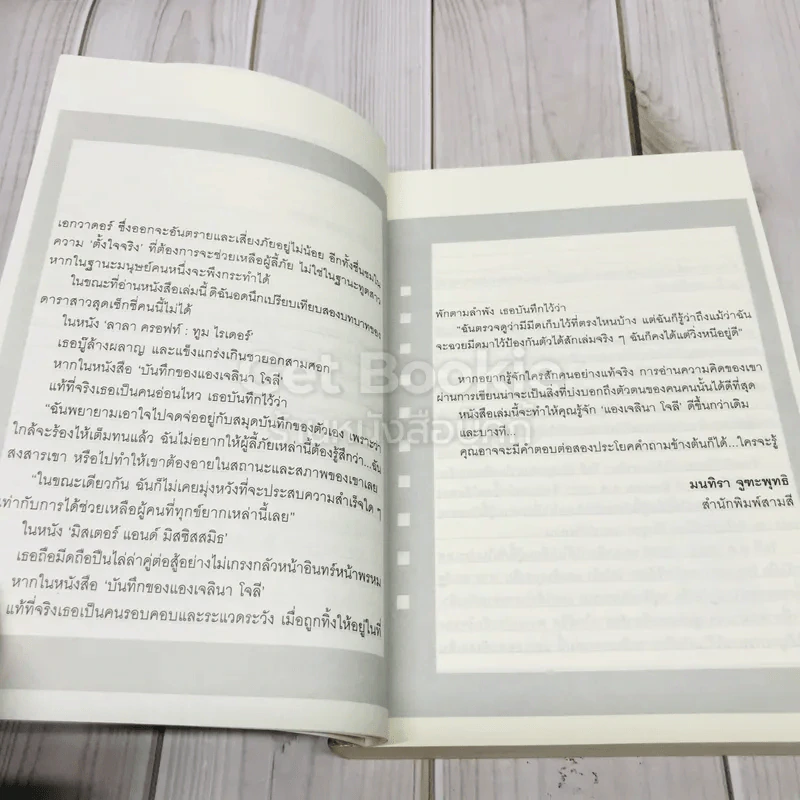 เอกวาดอร์ ซึ่งออกจะอันตรายและเสี่ยงภัยอยู่ไม่น้อย อีกทั้งชื่นชมใน
ความ ‘ตั้งใจจริง’ ที่ต้องการจะช่วยเหลือผู้ลี้ภัย ไม่ใช่ในฐานะทูตสาว
หากในฐานะมนุษย์คนหนึ่งจะพึงกระทำได้
ในขณะที่อ่านหนังสือเล่มนี้ ดิฉันอดนึกเปรียบเทียบสองบทบาทของ
ดาราสาวสุดเซ็กซี่คนนี้ไม่ได้
ในหนัง ‘ลาลา ครอฟท์ : ทูม ไรเดอร์’
เธอบู๊ล้างผลาญ และแข็งแกร่งเกินชายอกสามศอก
หากในหนังสือ ‘บันทึกของแองเจลินา โจลี’
แท้ที่จริงเธอเป็นคนอ่อนไหว เธอบันทึกไว้ว่า
“ฉันพยายามเอาใจไปจดจ่ออยู่กับสมุดบันทึกของตัวเอง เพราะว่า
ใกล้จะร้องไห้เต็มทนแล้ว ฉันไม่อยากให้ผู้ลี้ภัยเหล่านี้ต้องรู้สึกว่า...ฉัน
สงสารเขา หรือไปทำให้เขาต้องอายในสถานะและสภาพของเขาเลย
“ในขณะเดียวกัน ฉันก็ไม่เคยมุ่งหวังที่จะประสบความสำเร็จใด ๆ
เท่ากับการได้ช่วยเหลือผู้คนที่ทุกข์ยากเหล่านี้เลย”
ในหนัง ‘มิสเตอร์ แอนด์ มิสซิสสมิธ’
เธอถือมีดถือปืนไล่ล่าคู่ต่อสู้อย่างไม่เกรงกลัวหน้าอินทร์หน้าพรหม
หากในหนังสือ ‘บันทึกของแองเจลินา โจลี’
แท้ที่จริงเธอเป็นคนรอบคอบและระแวดระวัง เมื่อถูกทิ้งให้อยู่ในที่
พักตามลำพัง เธอบันทึกไว้ว่า
“ฉันตรวจดูว่ามีมีดเก็บไว้ที่ตรงไหนบ้าง แต่ฉันก็รู้ว่าถึงแม้ว่าฉัน
จะฉวยมีดมาไว้ป้องกันตัวได้สักเล่มจริง ๆ ฉันก็คงได้แต่วิ่งหนีอยู่ดี”
หากอยากรู้จักใครสักคนอย่างแท้จริง การอ่านความคิดของเขา
ผ่านการเขียนน่าจะเป็นสิ่งที่บ่งบอกถึงตัวตนของคนคนนั้นได้ดีที่สุด
หนังสือเล่มนี้จะทำให้คุณรู้จัก ‘แองเจลินา โจลี’ ดีขึ้นกว่าเดิม
และบางที...
คุณอาจจะมีคำตอบต่อสองประโยคคำถามข้างต้นก็ได้...ใครจะรู้
มนทิรา จูฑะพุทธิ
สำนักพิมพ์สามสี